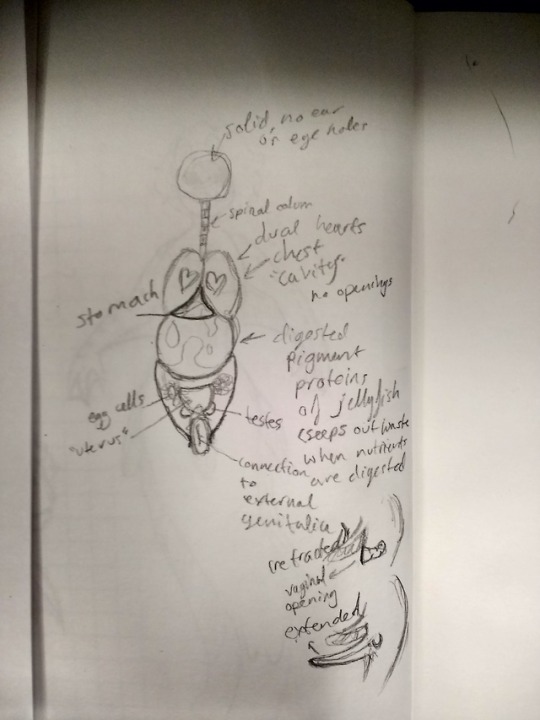 solid, no ear
or eye holes
spinal colum
dual hearts
chest
"cavity"
no openings
stomach
digested
pigment
proteins
of jellyfish
(seeps out waste
when nutrients
are digested
egg cells
"uterus"
testes
connection
to
external
genitalia
(retracted)
vaginal
opening
extended